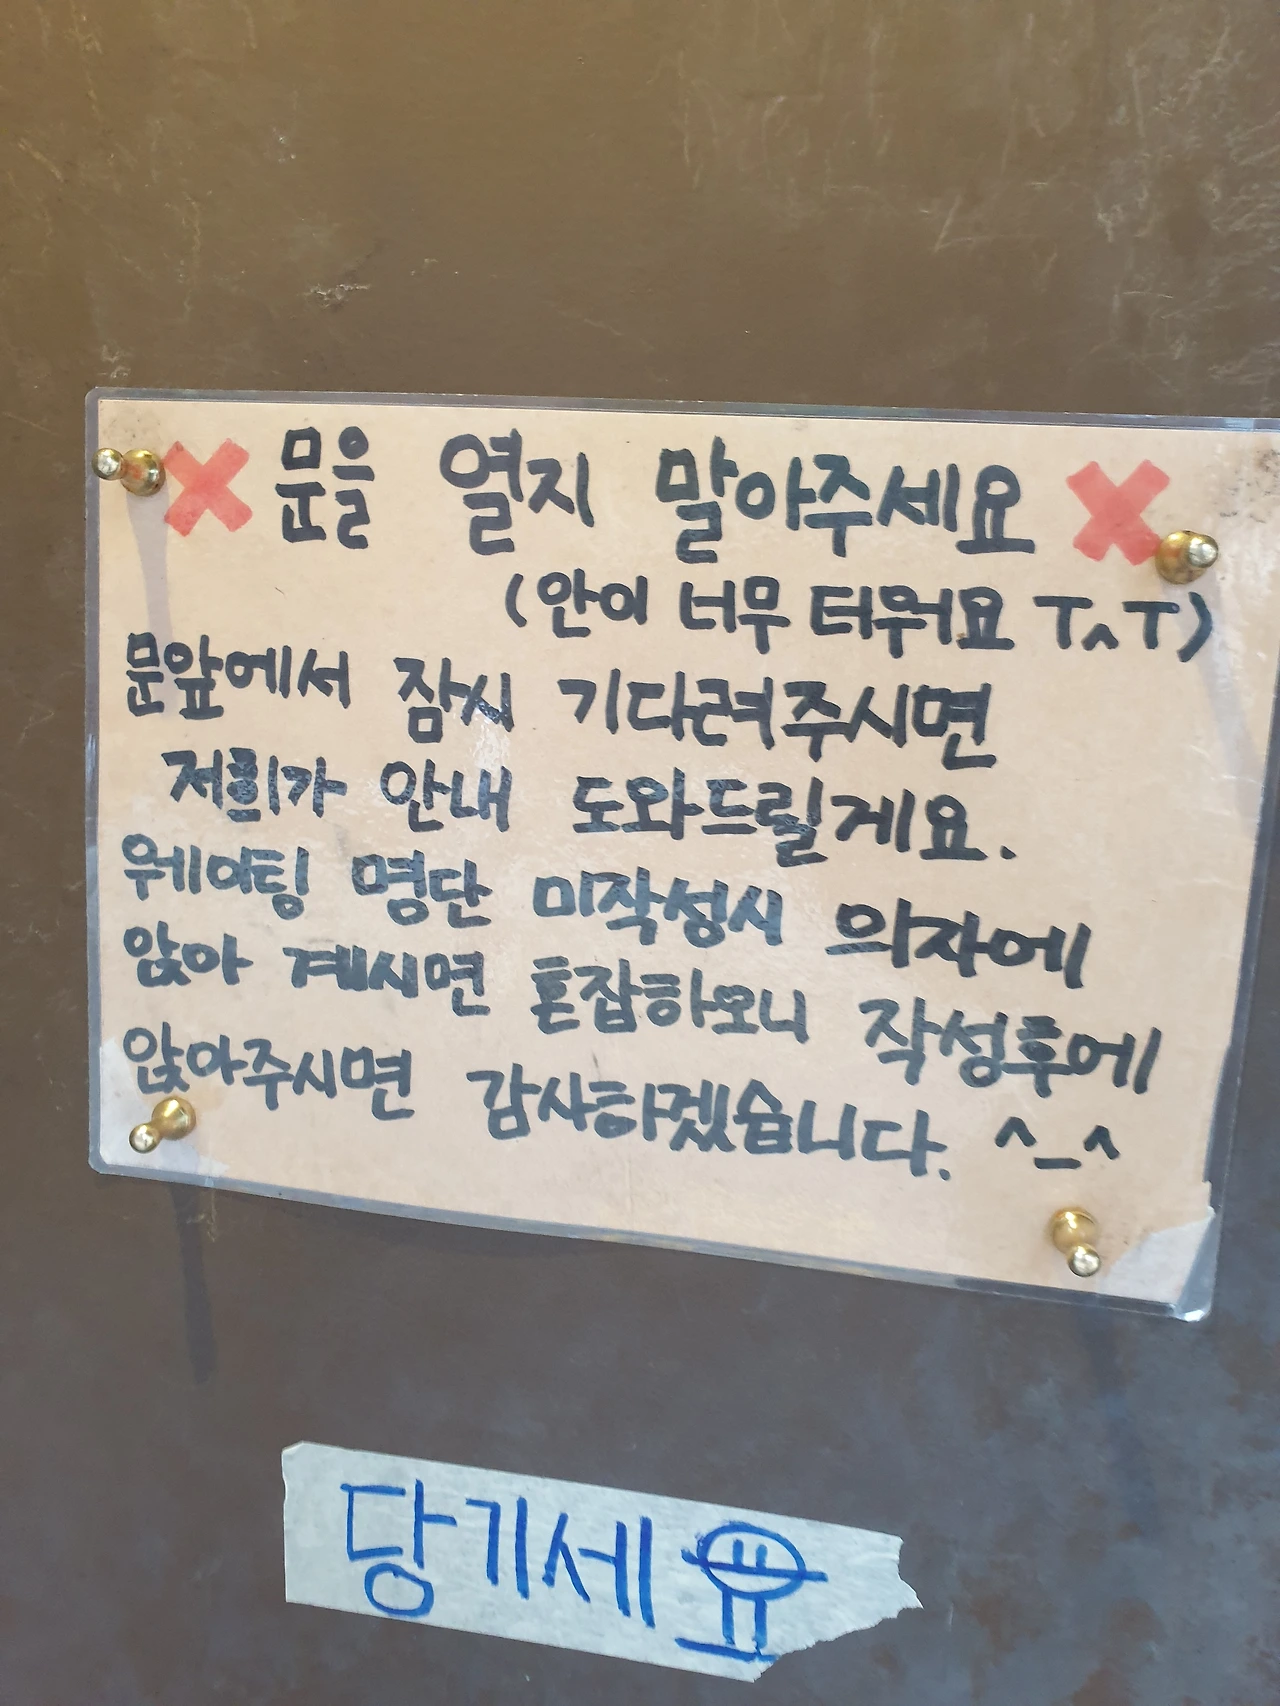 ❌ 문을 열지 말아주세요 ❌
(안이 너무 터워요 T^T)
문앞에서 잠시 기다려주시면
저희가 안내 도와드릴게요.
웨이팅 명단 미작성시 의자에
앉아 계시면 혼잡하오니 작성후에
앉아주시면 감사하겠습니다. ^_^
당기세요